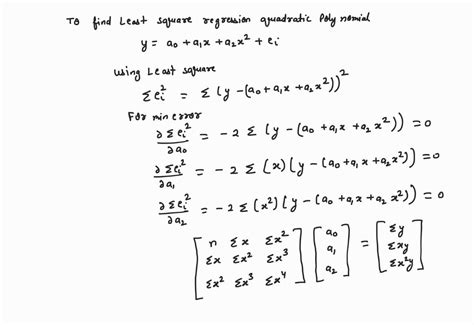 To find Least square regression quadratic Polynomial
y = a₀ + a₁x + a₂x² + eᵢ
using Least square
Σeᵢ² = Σ (y - (a₀ + a₁x + a₂x²))²
For min error
∂Σeᵢ²/∂a₀ = -2 Σ (y - (a₀ + a₁x + a₂x²)) = 0
∂Σeᵢ²/∂a₁ = -2 Σ (x) (y - (a₀ + a₁x + a₂x²)) = 0
∂Σeᵢ²/∂a₂ = -2 Σ (x²) (y - (a₀ + a₁x + a₂x²)) = 0
[n Σx Σx²] [a₀] = [Σy]
[Σx Σx² Σx³] [a₁] [Σxy]
[Σx² Σx³ Σx⁴] [a₂] [Σx²y]